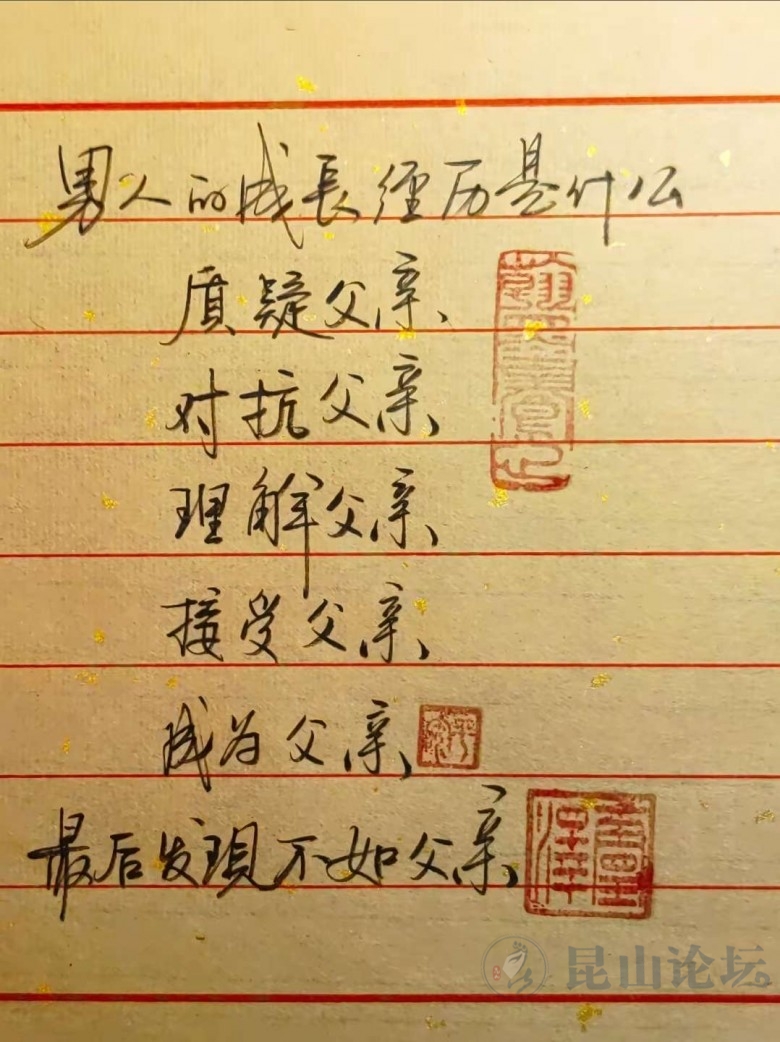 男人的成長經历是什么
质疑父亲
对抗父亲
理解父亲
接受父亲
成为父亲
最后发現不如父亲
昆山论坛